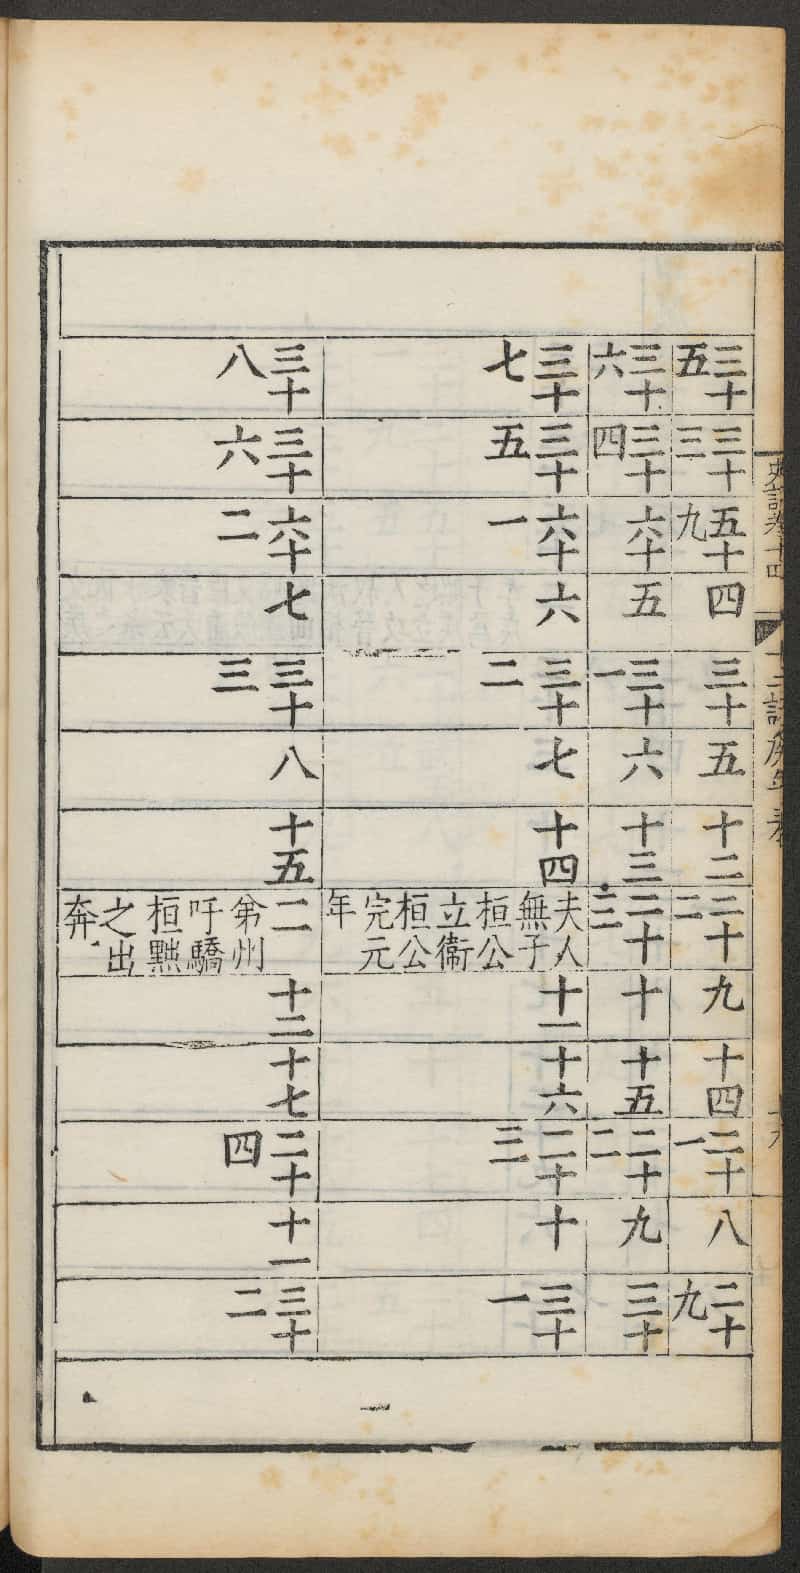 史記卷十四
十二諸侯年表
三十五
三十三
五十九
四
三十
五
十二
二十二
九
十四
二十一
八
二十九
三十六
三十四
六十
五
三十一
六
十三
二十三
十
十五
二十二
九
三十
三十七
三十五
六十一
六
三十二
七
十四
夫人
無子
桓公
立衞
桓公
完元
年
十一
十六
二十三
十
三十一
三十八
三十六
六十二
七
三十三
八
十五
二
弟州
吁驕
桓黜
之出
奔
十二
十七
二十四
十一
三十二